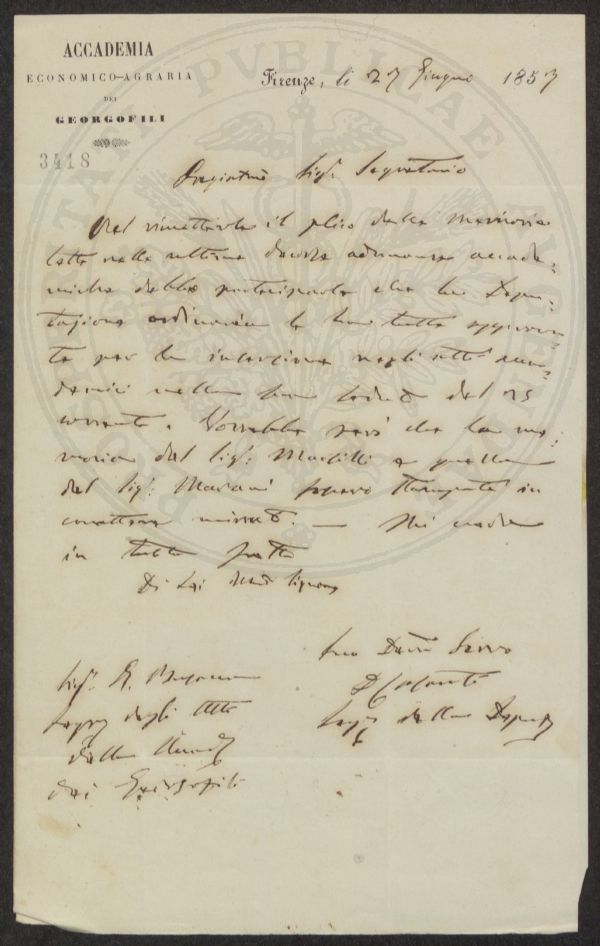 ACCADEMIA
ECONOMICO-AGRARIA
DEI
GEORGOFILI
3418
Firenze, li 27 Giugno 1857
Pregiatmo Sigr. Segretario
Nel rimetterle il plico delle Memorie
lette nella ultima decorsa adunanza accade-
mica debbo parteciparle che la Depu-
tazione ordinaria le ha tutte approva-
te per la inserzione negli atti acca-
demici nella sua seduta del 25
corrente. Vorrebbe però che la me-
moria del Sigr. e quella
del Sigr. fossero stampate in
carattere minuto. — Mi creda
in tutta fretta
Di Lei
Suo Devmo Servo
Segr. della Deput.
Sigr.
Segr. degli Atti
della Accad.
dei Georgofili